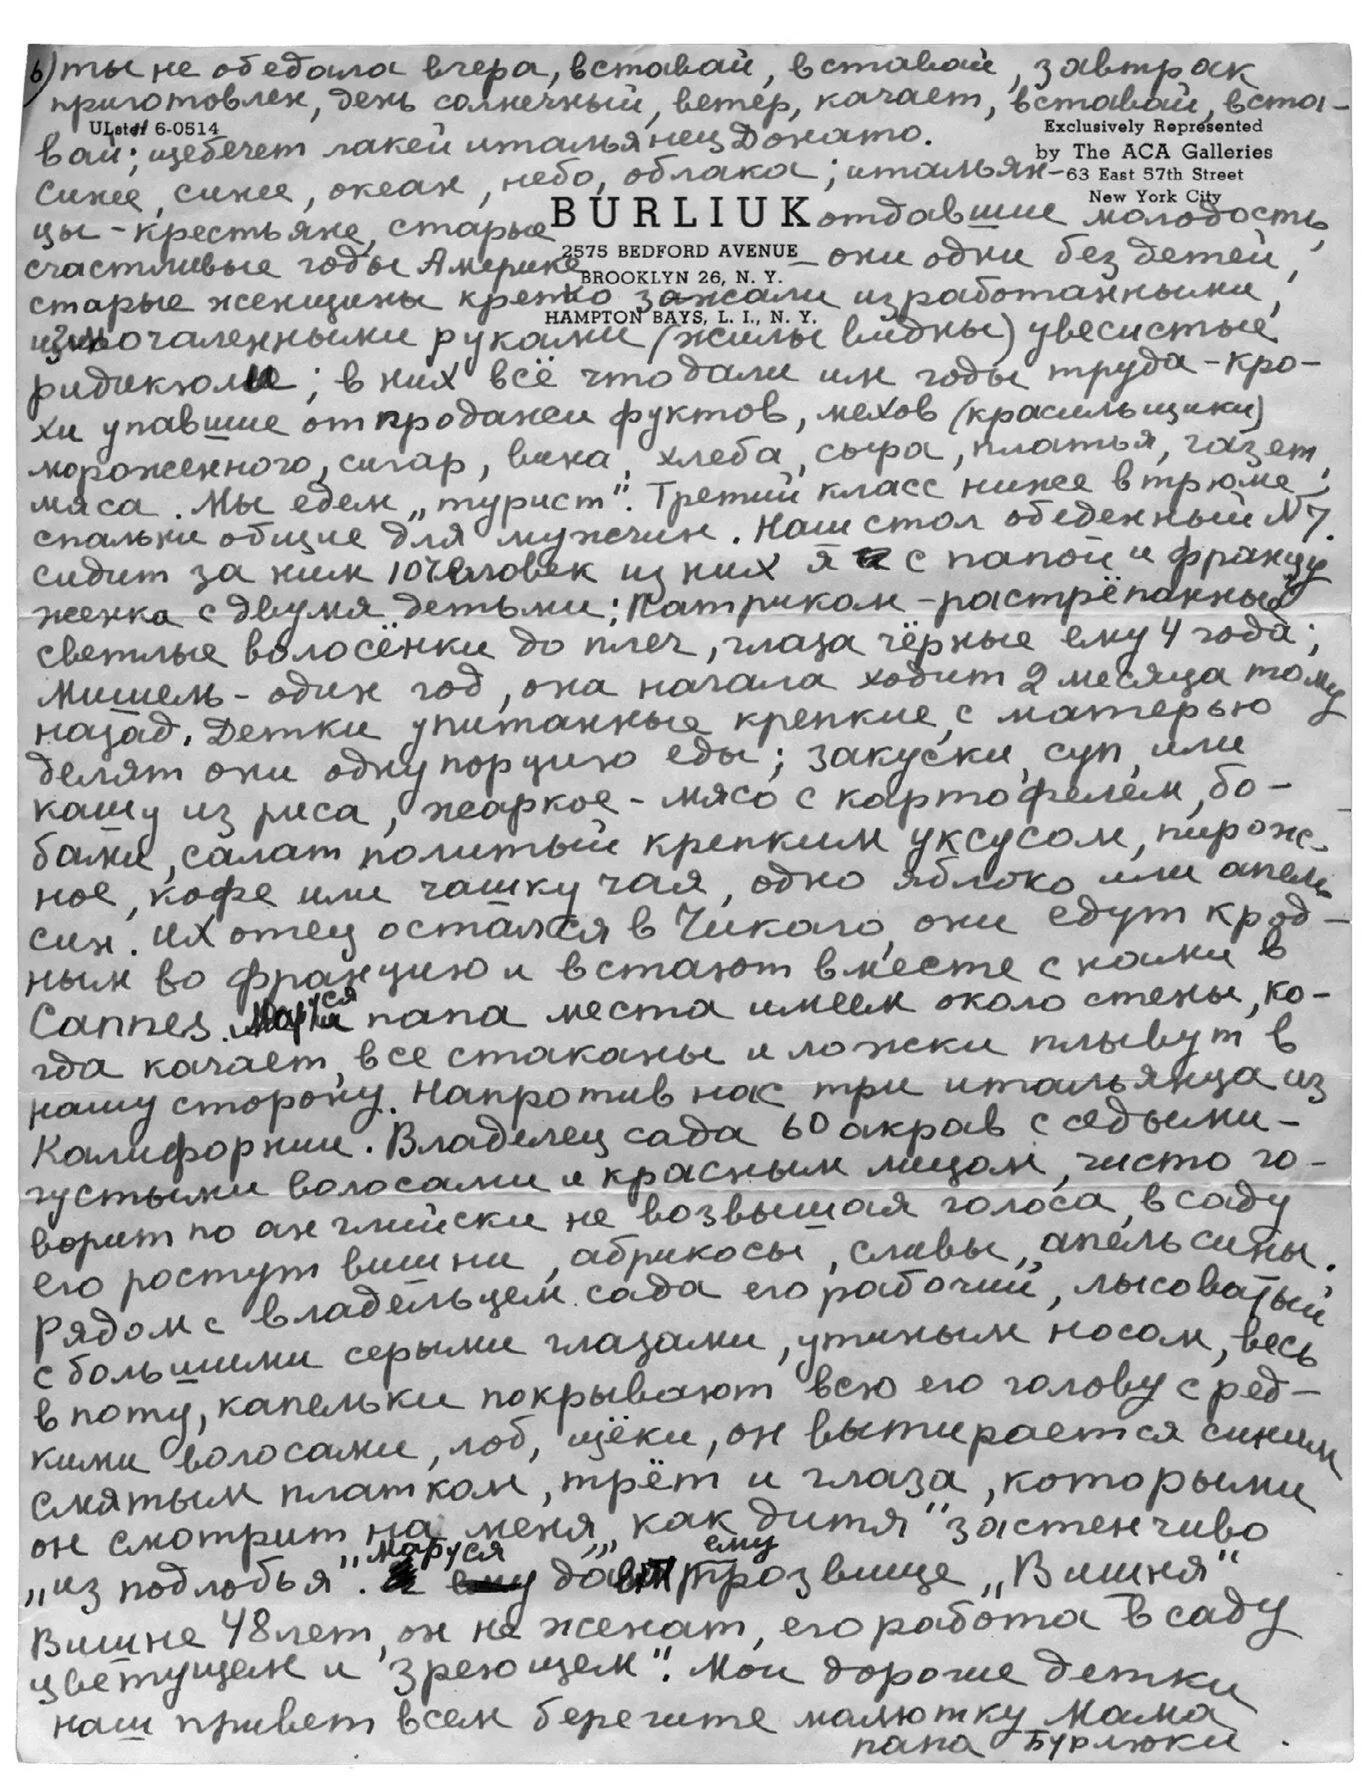 6) ты не обедала вчера, вставай, вставай, завтрак
приготовлен, день солнечный, ветер, качает, вставай, вста-
ULster 6-0514
Exclusively Represented
вай; щебечет лакей итальянец Донато.
by The ACA Galleries
63 East 57th Street
New York City
Синее, синее, океан, небо, облака; итальян-
BURLIUK
цы - крестьяне, старые отдавшие молодость,
2575 BEDFORD AVENUE
счастливые годы Америке - они одни без детей,
BROOKLYN 26, N. Y.
старые женщины крепко зажали изработанными,
HAMPTON BAYS, L. I., N. Y.
измочаленными руками (жилы видны) увесистые
ридикюли; в них всё что дали им годы труда - кро-
хи упавшие от продажи фруктов, мехов (красильщики)
мороженного, сигар, вина, хлеба, сыра, платья, газет,
мяса. Мы едем „турист". Третий класс ниже в трюме,
спальни общие для мужчин. Наш стол обеденный N 7.
сидит за ним 10 человек из них я с папой и францу
женка с двумя детьми; Патриком - растрёпанные
светлые волосёнки до плеч, глаза чёрные ему 4 года;
Мишель - один год, она начала ходит 2 месяца тому
назад. Детки упитанные крепкие, с матерью
делят они одну порцию еды; закуски, суп, или
кашу из риса, жаркое - мясо с картофелем, бо-
бами, салат политый крепким уксусом, пирож-
ное, кофе или чашку чая, одно яблоко или апель
син. Их отец остался в Чикаго, они едут к род-
ным во францию и встают вместе с нами в
Cannes. Маруся папа места имеем около стены, ко-
гда качает, все стаканы и ложки плывут в
нашу сторону. Напротив нас три итальянца из
Калифорнии. Владелец сада 60 акрав с седыми -
густыми волосами и красным лицом, чисто го-
ворит по английски не возвышая голоса, в саду
его ростут вишни, абрикосы, сливы, апельсины.
Рядом с владельцем сада его рабочий, лысоватый
с большими серыми глазами, утиным носом, весь
в поту, капельки покрывают всю его голову с ред-
кими волосами, лоб, щёки, он вытирается синим
смятым платком, трёт и глаза, которыми
он смотрит на меня, „как дитя" застенчиво
„из подлобья". Маруся даёт ему прозвище „Вишня"
Вишне 48 лет, он не женат, его работа в саду
цветущем и „зреющем". Мои дорогие детки
наш привет всем берегите малютку Мама
папа Бурлюки.